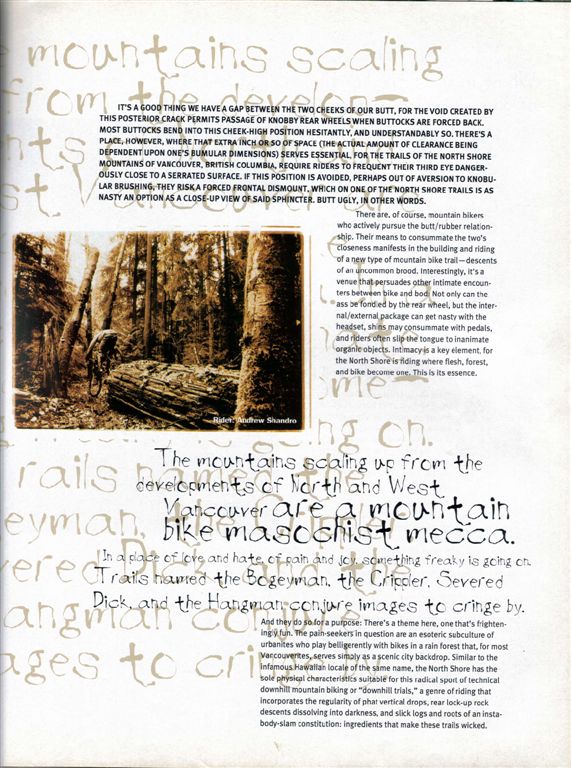 e mountains scaling
from the develop-
IT'S A GOOD THING WE HAVE A GAP BETWEEN THE TWO CHEEKS OF OUR BUTT, FOR THE VOID CREATED BY
THIS POSTERIOR CRACK PERMITS PASSAGE OF KNOBBY REAR WHEELS WHEN BUTTOCKS ARE FORCED BACK.
MOST BUTTOCKS BEND INTO THIS CHEEK-HIGH POSITION HESITANTLY, AND UNDERSTANDABLY SO. THERE'S A
PLACE, HOWEVER, WHERE THAT EXTRA INCH OR SO OF SPACE (THE ACTUAL AMOUNT OF CLEARANCE BEING
DEPENDENT UPON ONE'S BUMULAR DIMENSIONS) SERVES ESSENTIAL, FOR THE TRAILS OF THE NORTH SHORE
MOUNTAINS OF VANCOUVER, BRITISH COLUMBIA, REQUIRE RIDERS TO FREQUENT THEIR THIRD EYE DANGER-
OUSLY CLOSE TO A SERRATED SURFACE. IF THIS POSITION IS AVOIDED, PERHAPS OUT OF AVERSION TO KNOBU-
LAR BRUSHING, THEY RISK A FORCED FRONTAL DISMOUNT, WHICH ON ONE OF THE NORTH SHORE TRAILS IS AS
NASTY AN OPTION AS A CLOSE-UP VIEW OF SAID SPHINCTER. BUTT UGLY, IN OTHER WORDS.
There are, of course, mountain bikers
who actively pursue the butt/rubber relation-
ship. Their means to consummate the two's
closeness manifests in the building and riding
of a new type of mountain bike trail—descents
of an uncommon brood. Interestingly, it's a
venue that persuades other intimate encoun-
ters between bike and bod. Not only can the
ass be fondled by the rear wheel, but the inter-
nal/external package can get nasty with the
headset, shins may consummate with pedals,
and riders often slip the tongue to inanimate
organic objects. Intimacy is a key element, for
the North Shore is riding where flesh, forest,
and bike become one. This is its essence.
Rider: Andrew Shandro
me-
going on.
Trails named the
eyman, the
vered Dick, and the
angman conjure
ages to cringe by.
The mountains scaling up from the
developments of North and West
Vancouver are a mountain
bike masochist mecca.
In a place of love and hate, of pain and joy, something freaky is going on.
Trails named the Bogeyman, the Crippler, Severed
Dick, and the Hangman conjure images to cringe by.
And they do so for a purpose: There's a theme here, one that's frighten-
ingly fun. The pain-seekers in question are an esoteric subculture of
urbanites who play belligerently with bikes in a rain forest that, for most
Vancouverites, serves simply as a scenic city backdrop. Similar to the
infamous Hawaiian locale of the same name, the North Shore has the
sole physical characteristics suitable for this radical sport of technical
downhill mountain biking or "downhill trials," a genre of riding that
incorporates the regularity of phat vertical drops, rear lock-up rock
descents dissolving into darkness, and slick logs and roots of an insta-
body-slam constitution: ingredients that make these trails wicked.